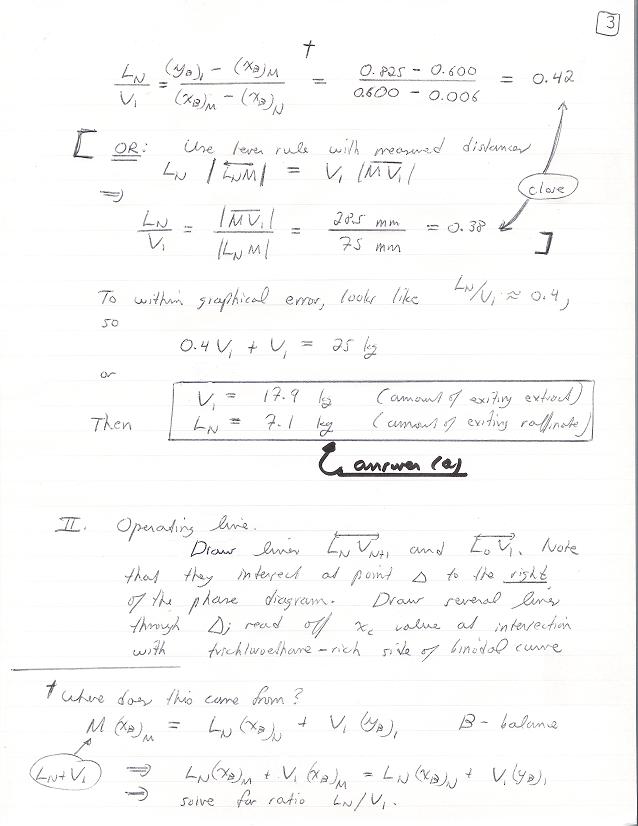 3
†
L_N / V_1 = ((y_B)_1 - (x_B)_M) / ((x_B)_M - (x_B)_N) = (0.825 - 0.600) / (0.600 - 0.006) = 0.42
[ OR: Use lever rule with measured distances
L_N |L_N M| = V_1 |M V_1|
close
⇒
L_N / V_1 = |M V_1| / |L_N M| = 28.5 mm / 75 mm = 0.38 ]
To within graphical error, looks like L_N/V_1 ≈ 0.4,
so
0.4 V_1 + V_1 = 25 kg
or
V_1 = 17.9 kg (amount of exiting extract)
Then L_N = 7.1 kg (amount of exiting raffinate)
answer (a)
II. Operating line.
Draw lines L_N V_N+1 and L_0 V_1. Note
that they intersect at point Δ to the right
of the phase diagram. Draw several lines
through Δ; read off x_C value at intersection
with trichloroethane-rich side of binodal curve
† Where does this come from?
M (x_B)_M = L_N (x_B)_N + V_1 (y_B)_1 B-balance
L_N + V_1 ⇒ L_N (x_B)_M + V_1 (x_B)_M = L_N (x_B)_N + V_1 (y_B)_1
⇒ solve for ratio L_N/V_1.